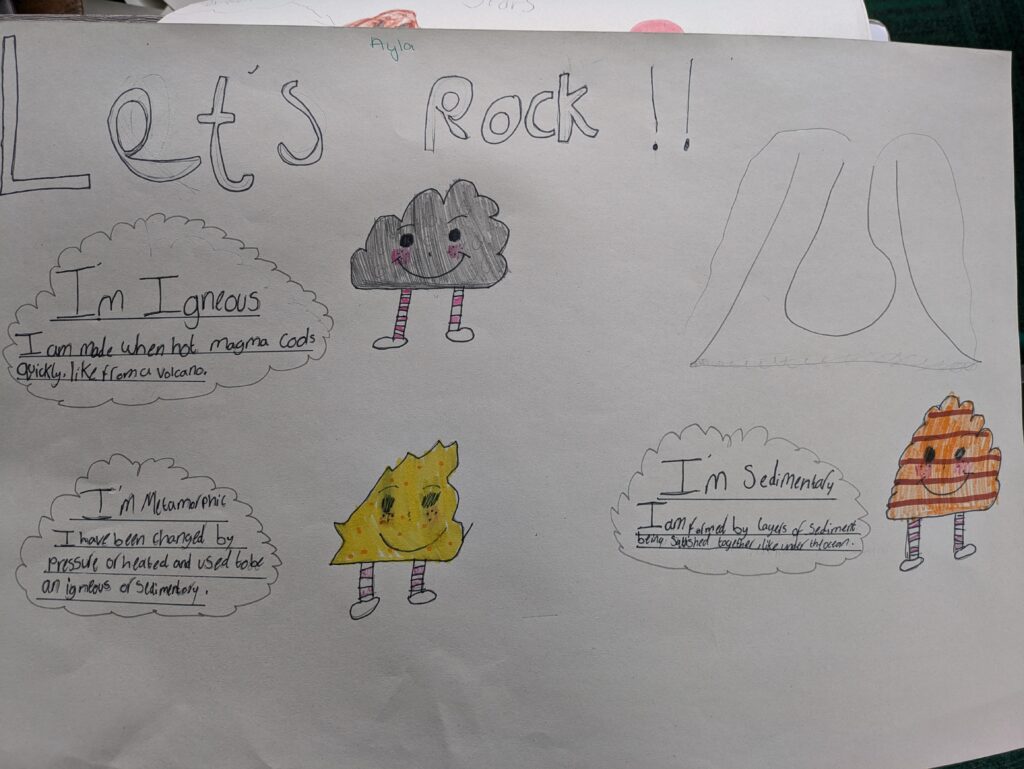 Stars
Ayla
Let's Rock !!
I'm Igneous
I am made when hot magma cools
quickly, like from a volcano.
I'm Metamorphic
I have been changed by
pressure or heated and used to be
an igneous or sedimentary.
I'm Sedimentary
I am formed by layers of sediment
being together, like under the ocean.